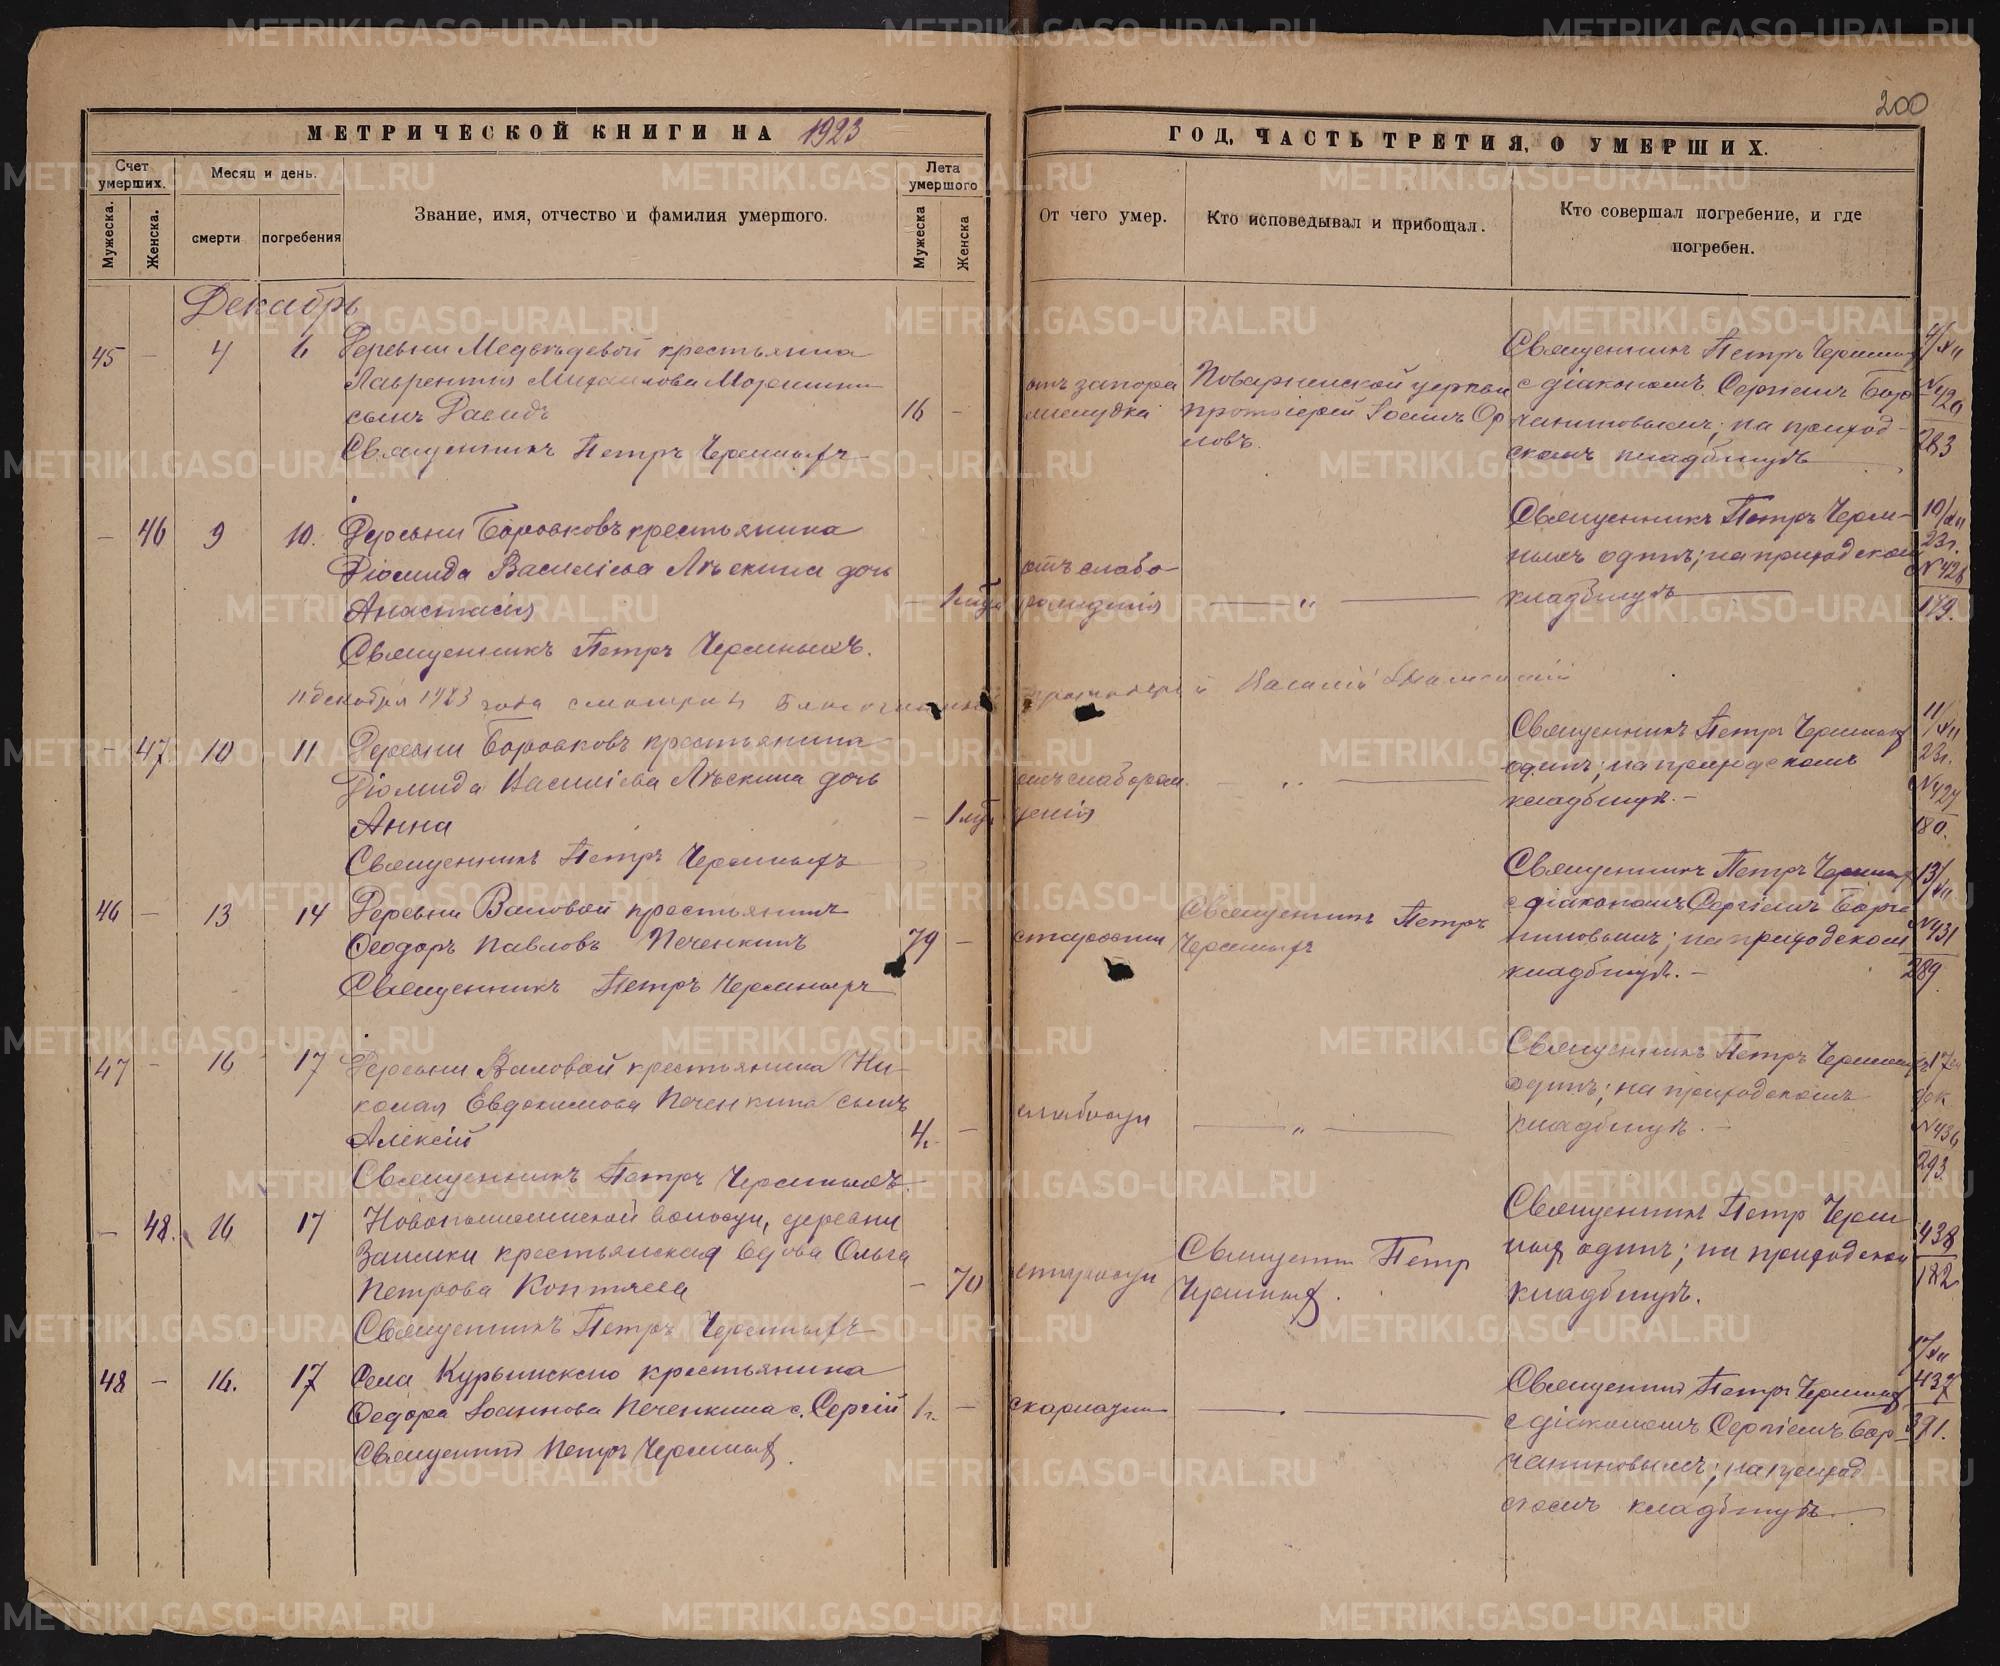 200
МЕТРИЧЕСКОЙ КНИГИ НА 1923
ГОД, ЧАСТЬ ТРЕТИЯ, О УМЕРШИХ.
Счет умерших.
Мужеска.
Женска.
Месяц и день.
смерти
погребения
Звание, имя, отчество и фамилия умершого.
Лета умершого
Мужеска
Женска
От чего умер.
Кто исповедывал и прибощал.
Кто совершал погребение, и где
погребен.
Декабрь
45 - 4 6
Деревни Медвѣдевой крестьянина
Лаврентія Михаилова
сынъ Давидъ
Священникъ Петръ Черемныхъ
16 -
отъ запора
желудка
церкви
протоіерей Іоаннъ Ор
ловъ.
Священникъ Петръ Черемных
с діакономъ Сергіемъ Бор
чаниновымъ; на приход-
скомъ кладбищѣ
4/XII
№426
283
- 46 9 10.
Деревни Боровковъ крестьянина
Діомида Василіева Лѣскина дочь
Анастасія
Священникъ Петръ Черемныхъ.
отъ слабо
рожденія
- „ -
Священникъ Петръ Черем-
ныхъ одинъ; на приходском
кладбищѣ
10/XII
23г.
№428
179.
11 декабря 1923 года смотрѣлъ Благочинный протоіерей
- 47 10 11
Деревни Боровковъ крестьянина
Діомида Василіева Лѣскина дочь
Анна
Священникъ Петръ Черемныхъ
отъ слаборож
денія
Священникъ Петръ Черемных
одинъ; на приходскомъ
кладбищѣ. -
11/XII
23г.
№427
180.
46 - 13 14
Деревни Валовой крестьянинъ
Ѳеодоръ Павловъ Печенкинъ
Священникъ Петръ Черемныхъ
79 -
старости
Священникъ Петръ
Черемныхъ
Священникъ Петръ Черемных
с діакономъ Сергіемъ Борча
ниновымъ; на приходском
кладбищѣ. -
13/XII
№431
289
47 - 16 17
Деревни Валовой крестьянина Ни-
колая Евдокимова Печенкина сынъ
Алексій
Священникъ Петръ Черемныхъ.
4. -
слабости
- „ -
Священникъ Петръ Черемных
одинъ; на приходскомъ
кладбищѣ. -
17
дек
№436
293
- 48. 16 17
волости, деревни
Заимки крестьянская вдова Ольга
Петрова Коптяева
Священникъ Петръ Черемныхъ
- 70
старости
Священник Петр
Черемных.
Священникъ Петр Черем
ных одинъ; на приходском
кладбищѣ.
438
182
48 - 16. 17
Села Курьинскаго крестьянина
Ѳедора Іоаннова Печенкина с. Сергій
Священник Петръ Черемных.
1г. -
скарлатины
Священник Петръ Черемных
с діакономъ Сергіемъ Бор-
чаниновымъ; на приход
скомъ кладбищѣ
17/XII
437
391.